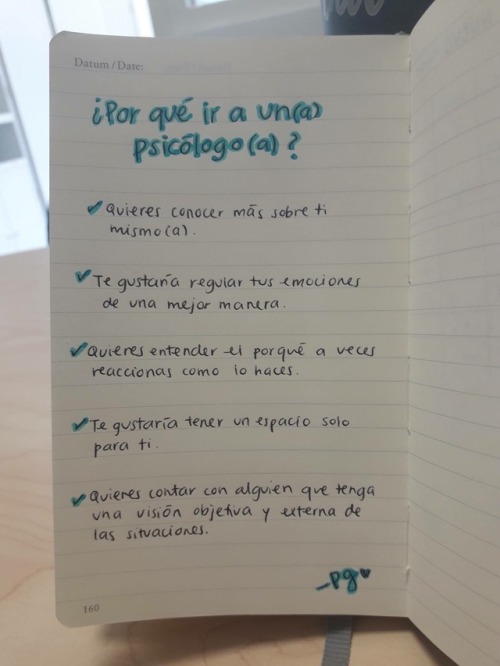 Datum / Date:
¿Por qué ir a un(a)
psicólogo(a)?
Quieres conocer más sobre ti
mismo(a).
Te gustaría regular tus emociones
de una mejor manera.
Quieres entender el porqué a veces
reaccionas como lo haces.
Te gustaría tener un espacio solo
para ti.
Quieres contar con alguien que tenga
una visión objetiva y externa de
las situaciones.
-pg♥
160